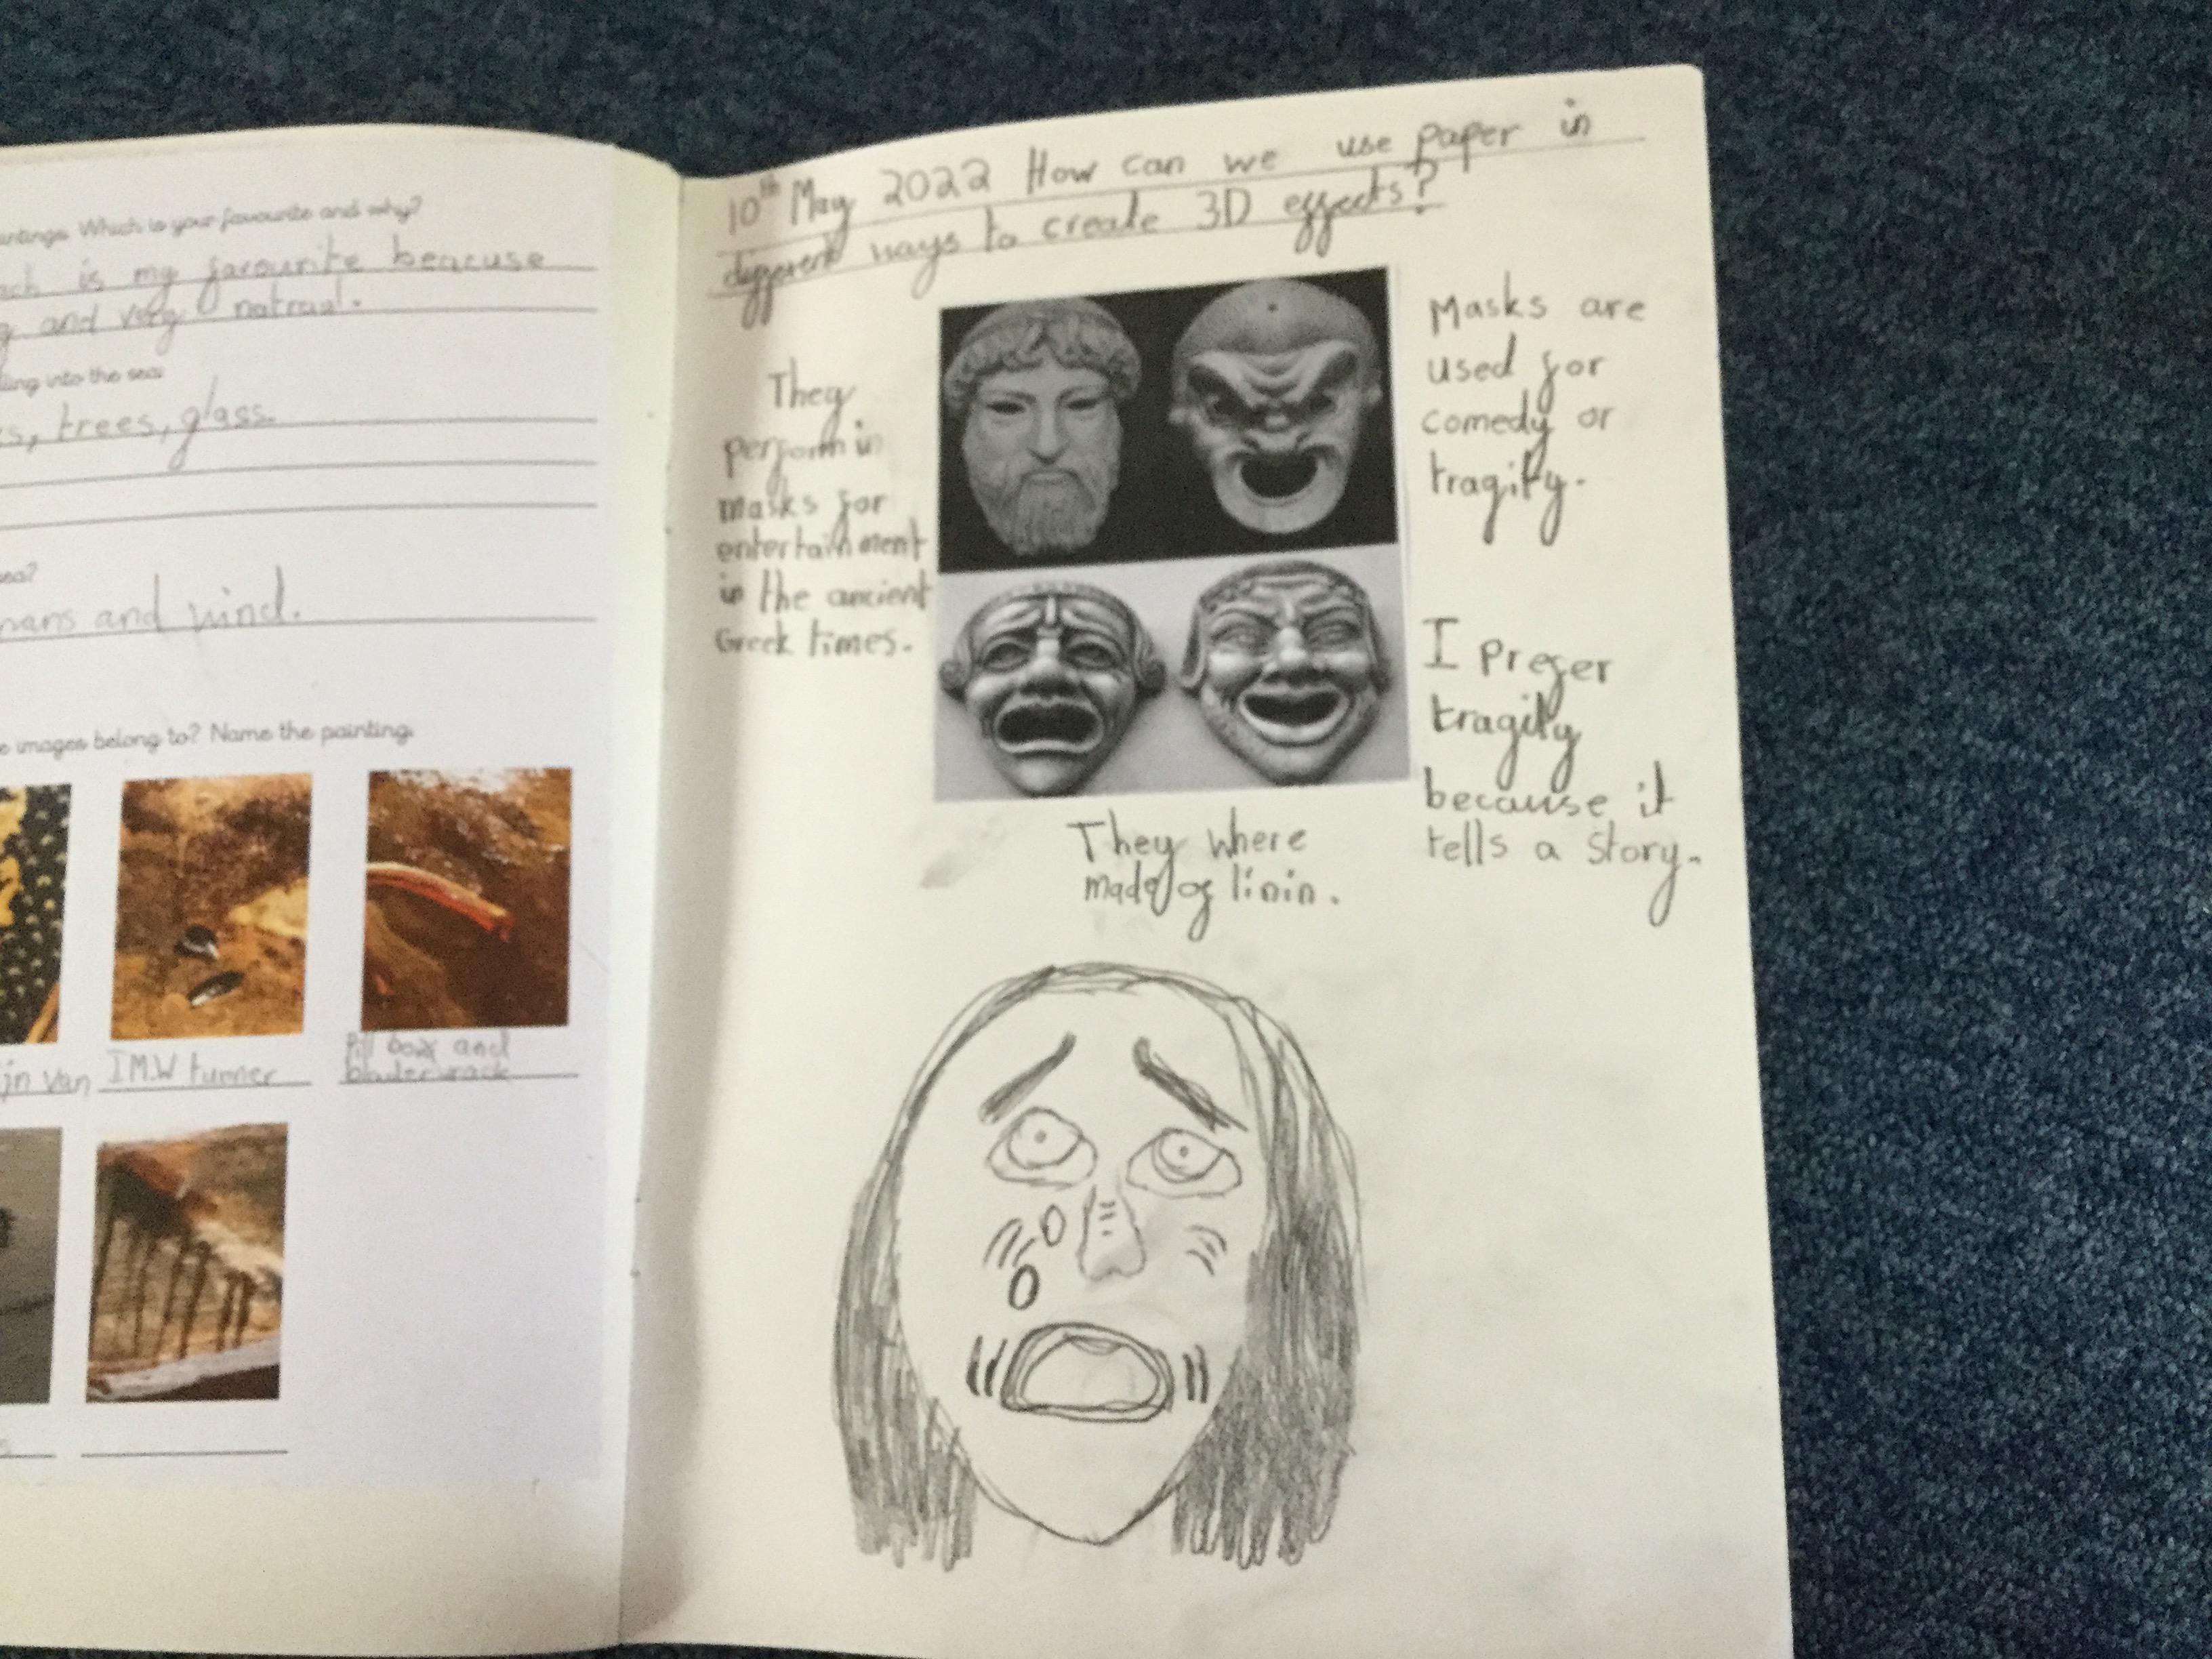 antings. Which is your favourite and why?
ach is my favourite beacuse
g and very natraul.
ling into the sea:
s, trees, glass.
sea?
mans and wind.
e images belong to? Name the painting.
jn Van
I M.W turner
Pill box and
10th May 2022 How can we use paper in
different ways to create 3D effects?
They
perform in
masks for
entertainment
in the ancient
Greek times.
Masks are
used for
comedy or
tragity.
I prefer
tragity
because it
tells a story.
They where
made of linin.